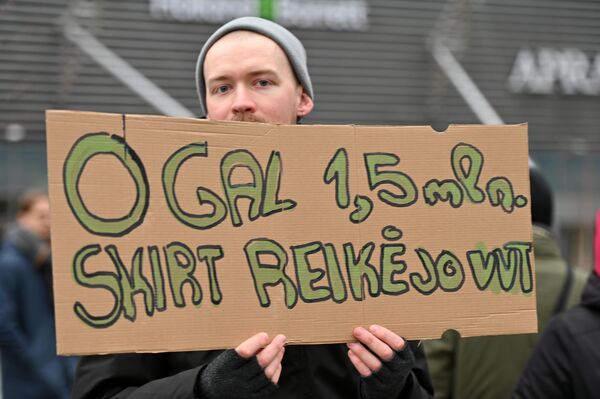 O GAL 1,5 mln.
SKIRT REIKĖJO VVT